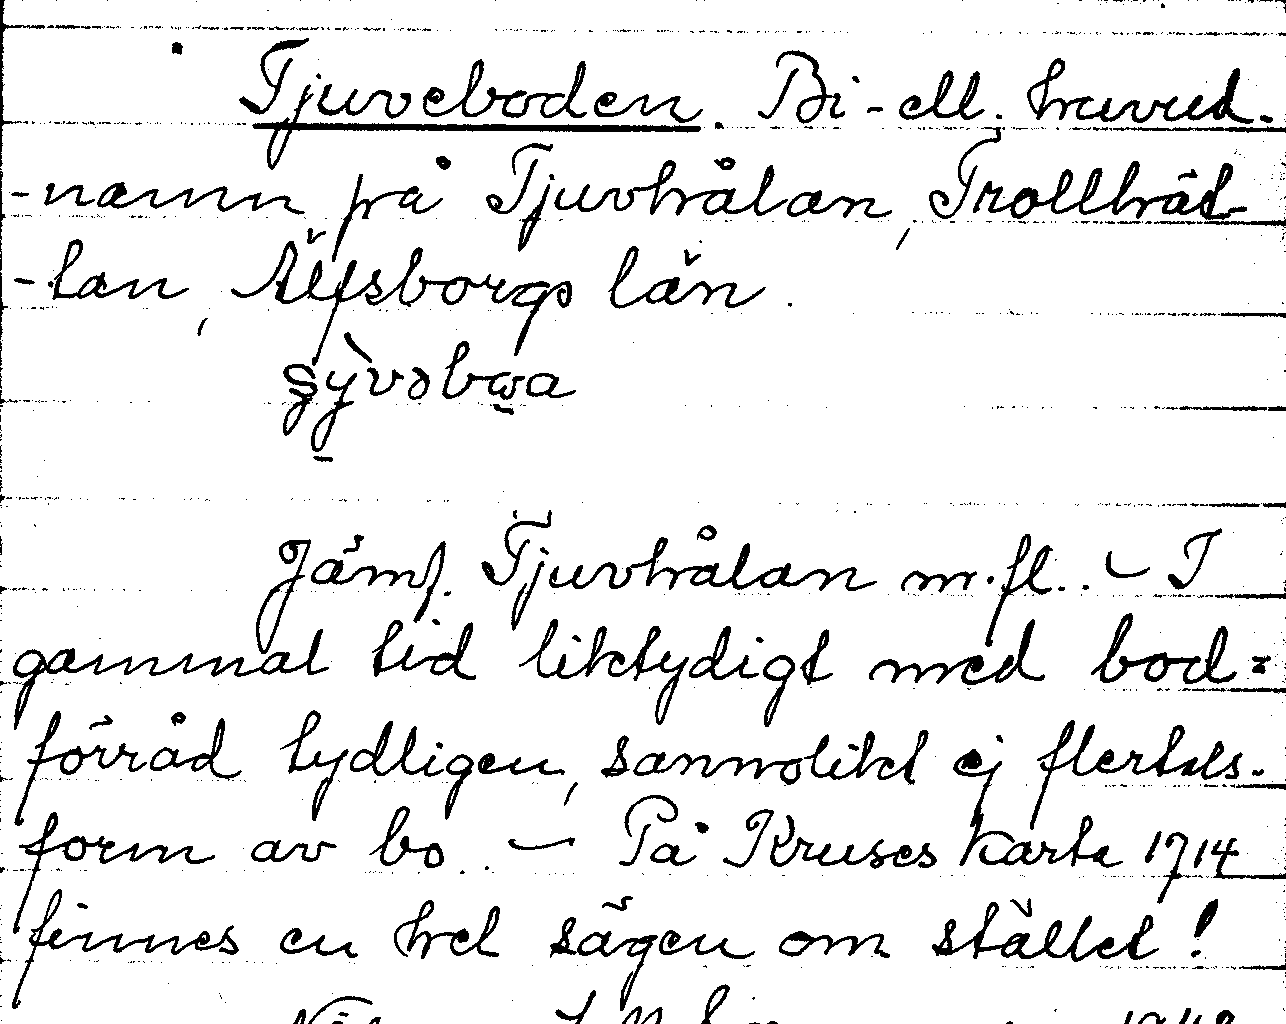 Tjuveboden. Bi- ell. huvud-
-namn på Tjuvhålan, Trollhät-
-tan, Älfsborgs län.
Jämf. Tjuvhålan m.fl.. - I
gammal tid liktydigt med bod=
förråd tydligen, sannolikt ej flertals-
form av bo. - På Kruses karta 1714
finnes en hel sägen om stället!